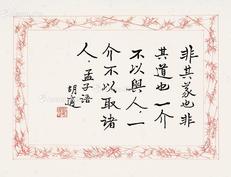 非其義也非
其道也一介
不以與人一
介不以取諸
人孟子語
胡適